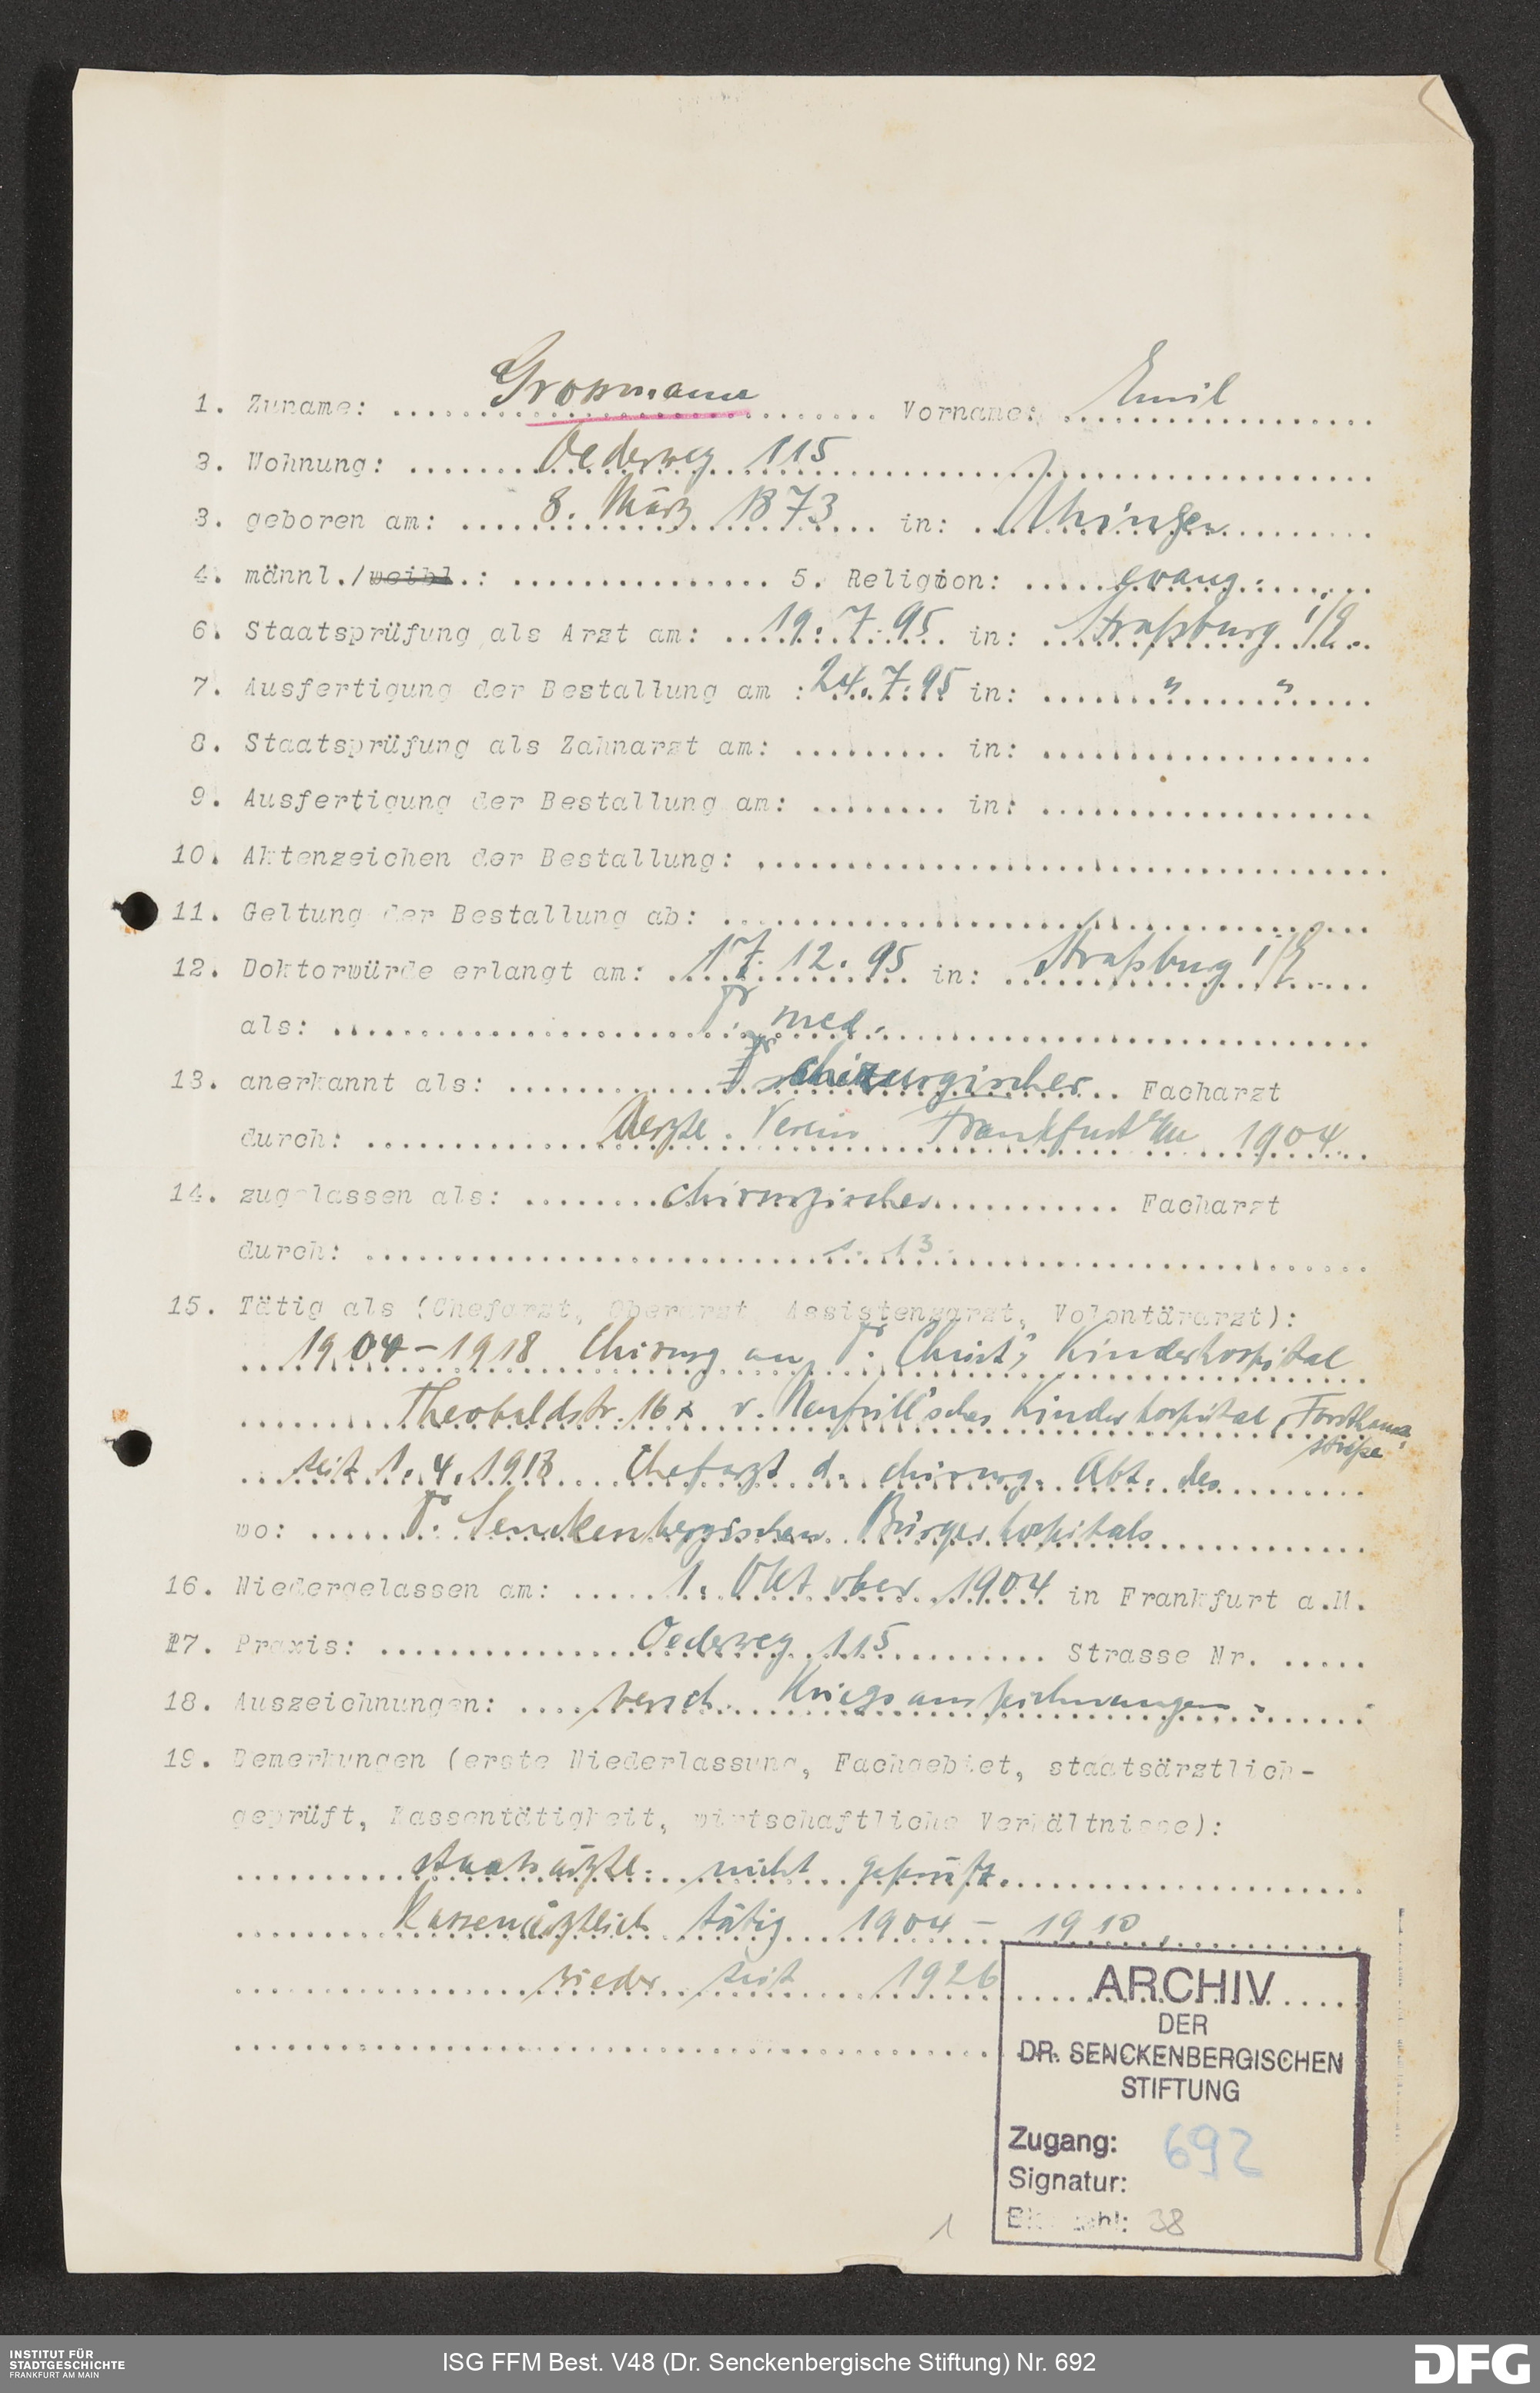 1. Zuname: Grossmann Vorname: Emil
3. Wohnung: Oederweg 115
3. geboren am: 8. März 1873 in: Uhingen
4. männl./weibl.: 5. Religion: evang.
6. Staatsprüfung als Arzt am: 19.7.95 in: Straßburg i/E.
7. Ausfertigung der Bestallung am : 24.7.95 in: " "
8. Staatsprüfung als Zahnarzt am: in:
9. Ausfertigung der Bestallung am: in:
10. Aktenzeichen der Bestallung:
11. Geltung der Bestallung ab:
12. Doktorwürde erlangt am: 17.12.95 in: Straßburg i/E
als: Dr. med.
13. anerkannt als: chirurgischer Facharzt
durch: Aerzte Verein Frankfurt a/M 1904
14. zugelassen als: chirurgischer Facharzt
durch: s. 13
15. Tätig als (Chefarzt, Oberarzt, Assistenzarzt, Volontärarzt):
1904-1918 Chirurg am Dr. Christ's Kinderhospital
Theobaldstr. 16 v. Neufvill'sches Kinderhospital, Forsthaus-
straße
seit 1.4.1918 Chefarzt d. chirurg. Abt. des
wo: Dr. Senckenbergischen Bürgerhospitals
16. Niedergelassen am: 1. Oktober 1904 in Frankfurt a.M.
17. Praxis: Oederweg 115 Strasse Nr.
18. Auszeichnungen: versch. Kriegsauszeichnungen
19. Bemerkungen (erste Niederlassung, Fachgebiet, staatsärztlich-
geprüft, Kassentätigkeit, wirtschaftliche Verhältnisse):
staatsärztl. nicht geprüft.
Kassenärztlich tätig 1904 - 1910,
wieder seit 1926
ARCHIV
DER
DR. SENCKENBERGISCHEN
STIFTUNG
Zugang: 692
Signatur:
38
1
INSTITUT FÜR
STADTGESCHICHTE
FRANKFURT AM MAIN
ISG FFM Best. V48 (Dr. Senckenbergische Stiftung) Nr. 692
DFG